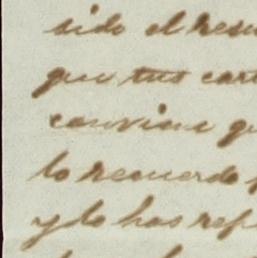 sido el resu
que tus cart
conviene q
lo recuerdo
y lo has ref